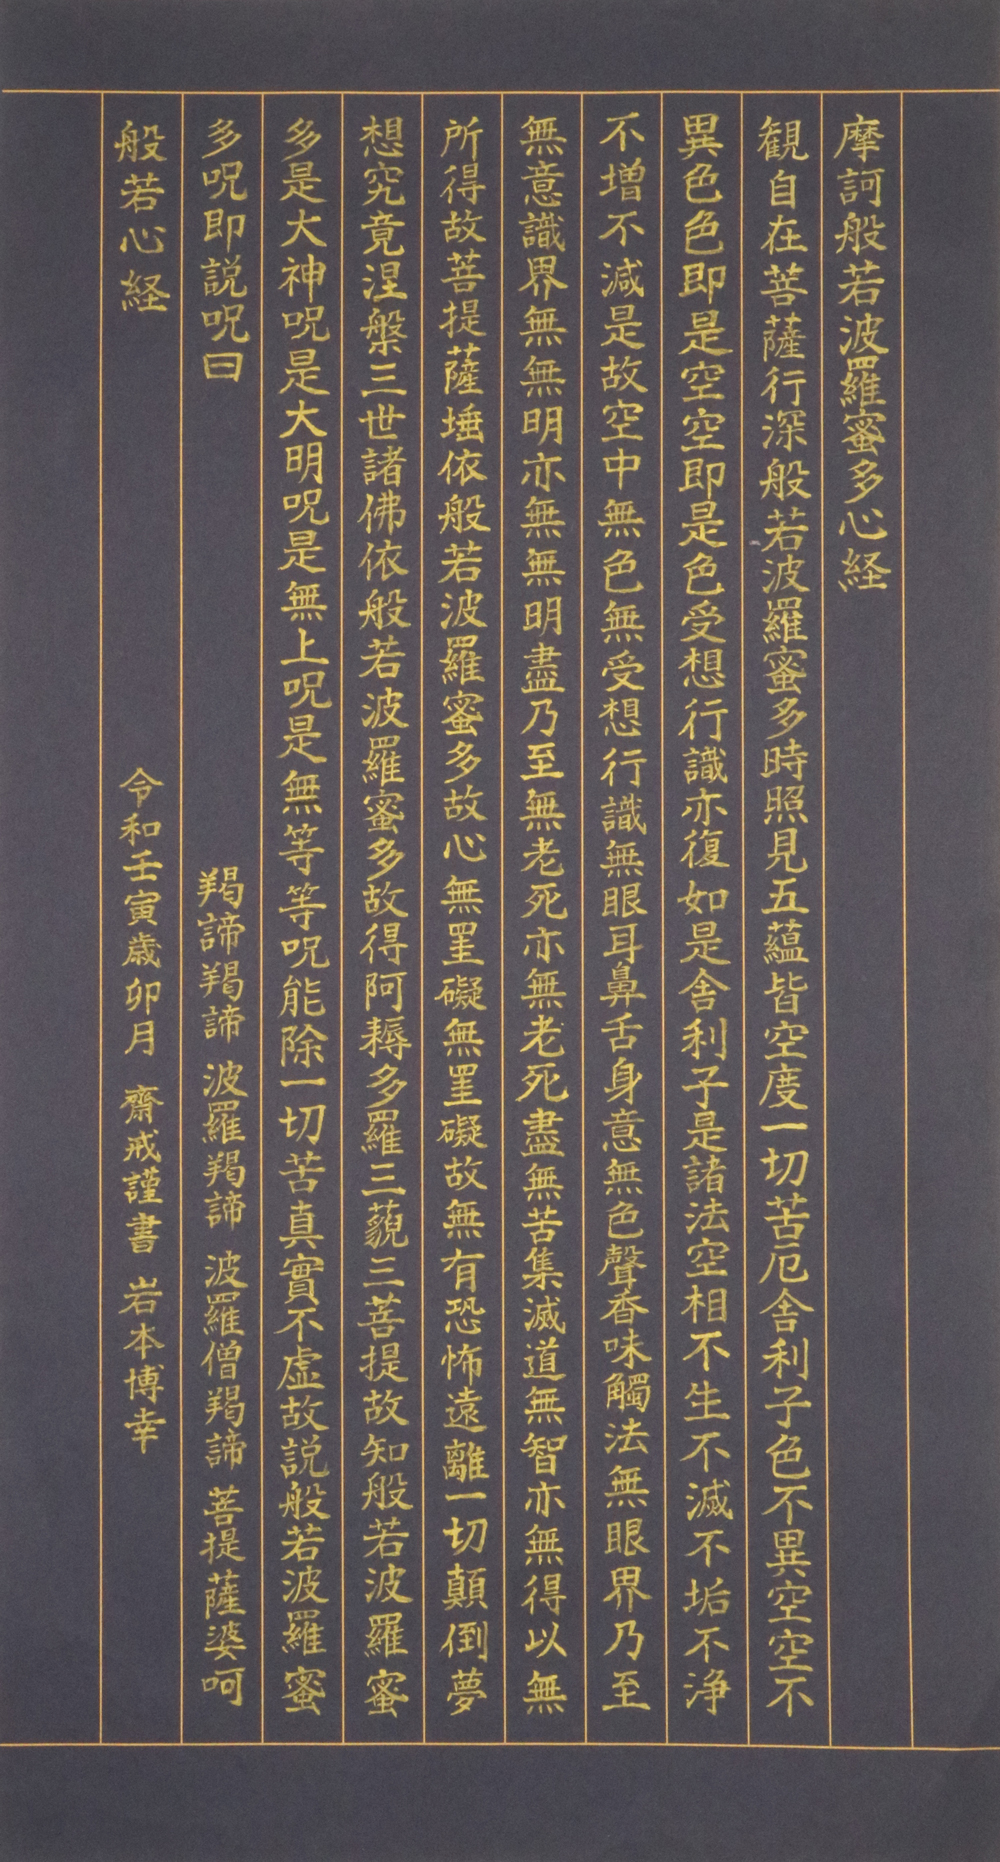 摩訶般若波羅蜜多心経
観自在菩薩行深般若波羅蜜多時照見五蘊皆空度一切苦厄舎利子色不異空空不
異色色即是空空即是色受想行識亦復如是舎利子是諸法空相不生不滅不垢不浄
不増不減是故空中無色無受想行識無眼耳鼻舌身意無色聲香味觸法無眼界乃至
無意識界無無明亦無無明盡乃至無老死亦無老死盡無苦集滅道無智亦無得以無
所得故菩提薩埵依般若波羅蜜多故心無罣礙無罣礙故無有恐怖遠離一切顛倒夢
想究竟涅槃三世諸佛依般若波羅蜜多故得阿耨多羅三藐三菩提故知般若波羅蜜
多是大神呪是大明呪是無上呪是無等等呪能除一切苦真實不虚故説般若波羅蜜
多呪即説呪曰 羯諦羯諦 波羅羯諦 波羅僧羯諦 菩提薩婆呵
般若心経 令和壬寅歳卯月 齋戒謹書 岩本博幸